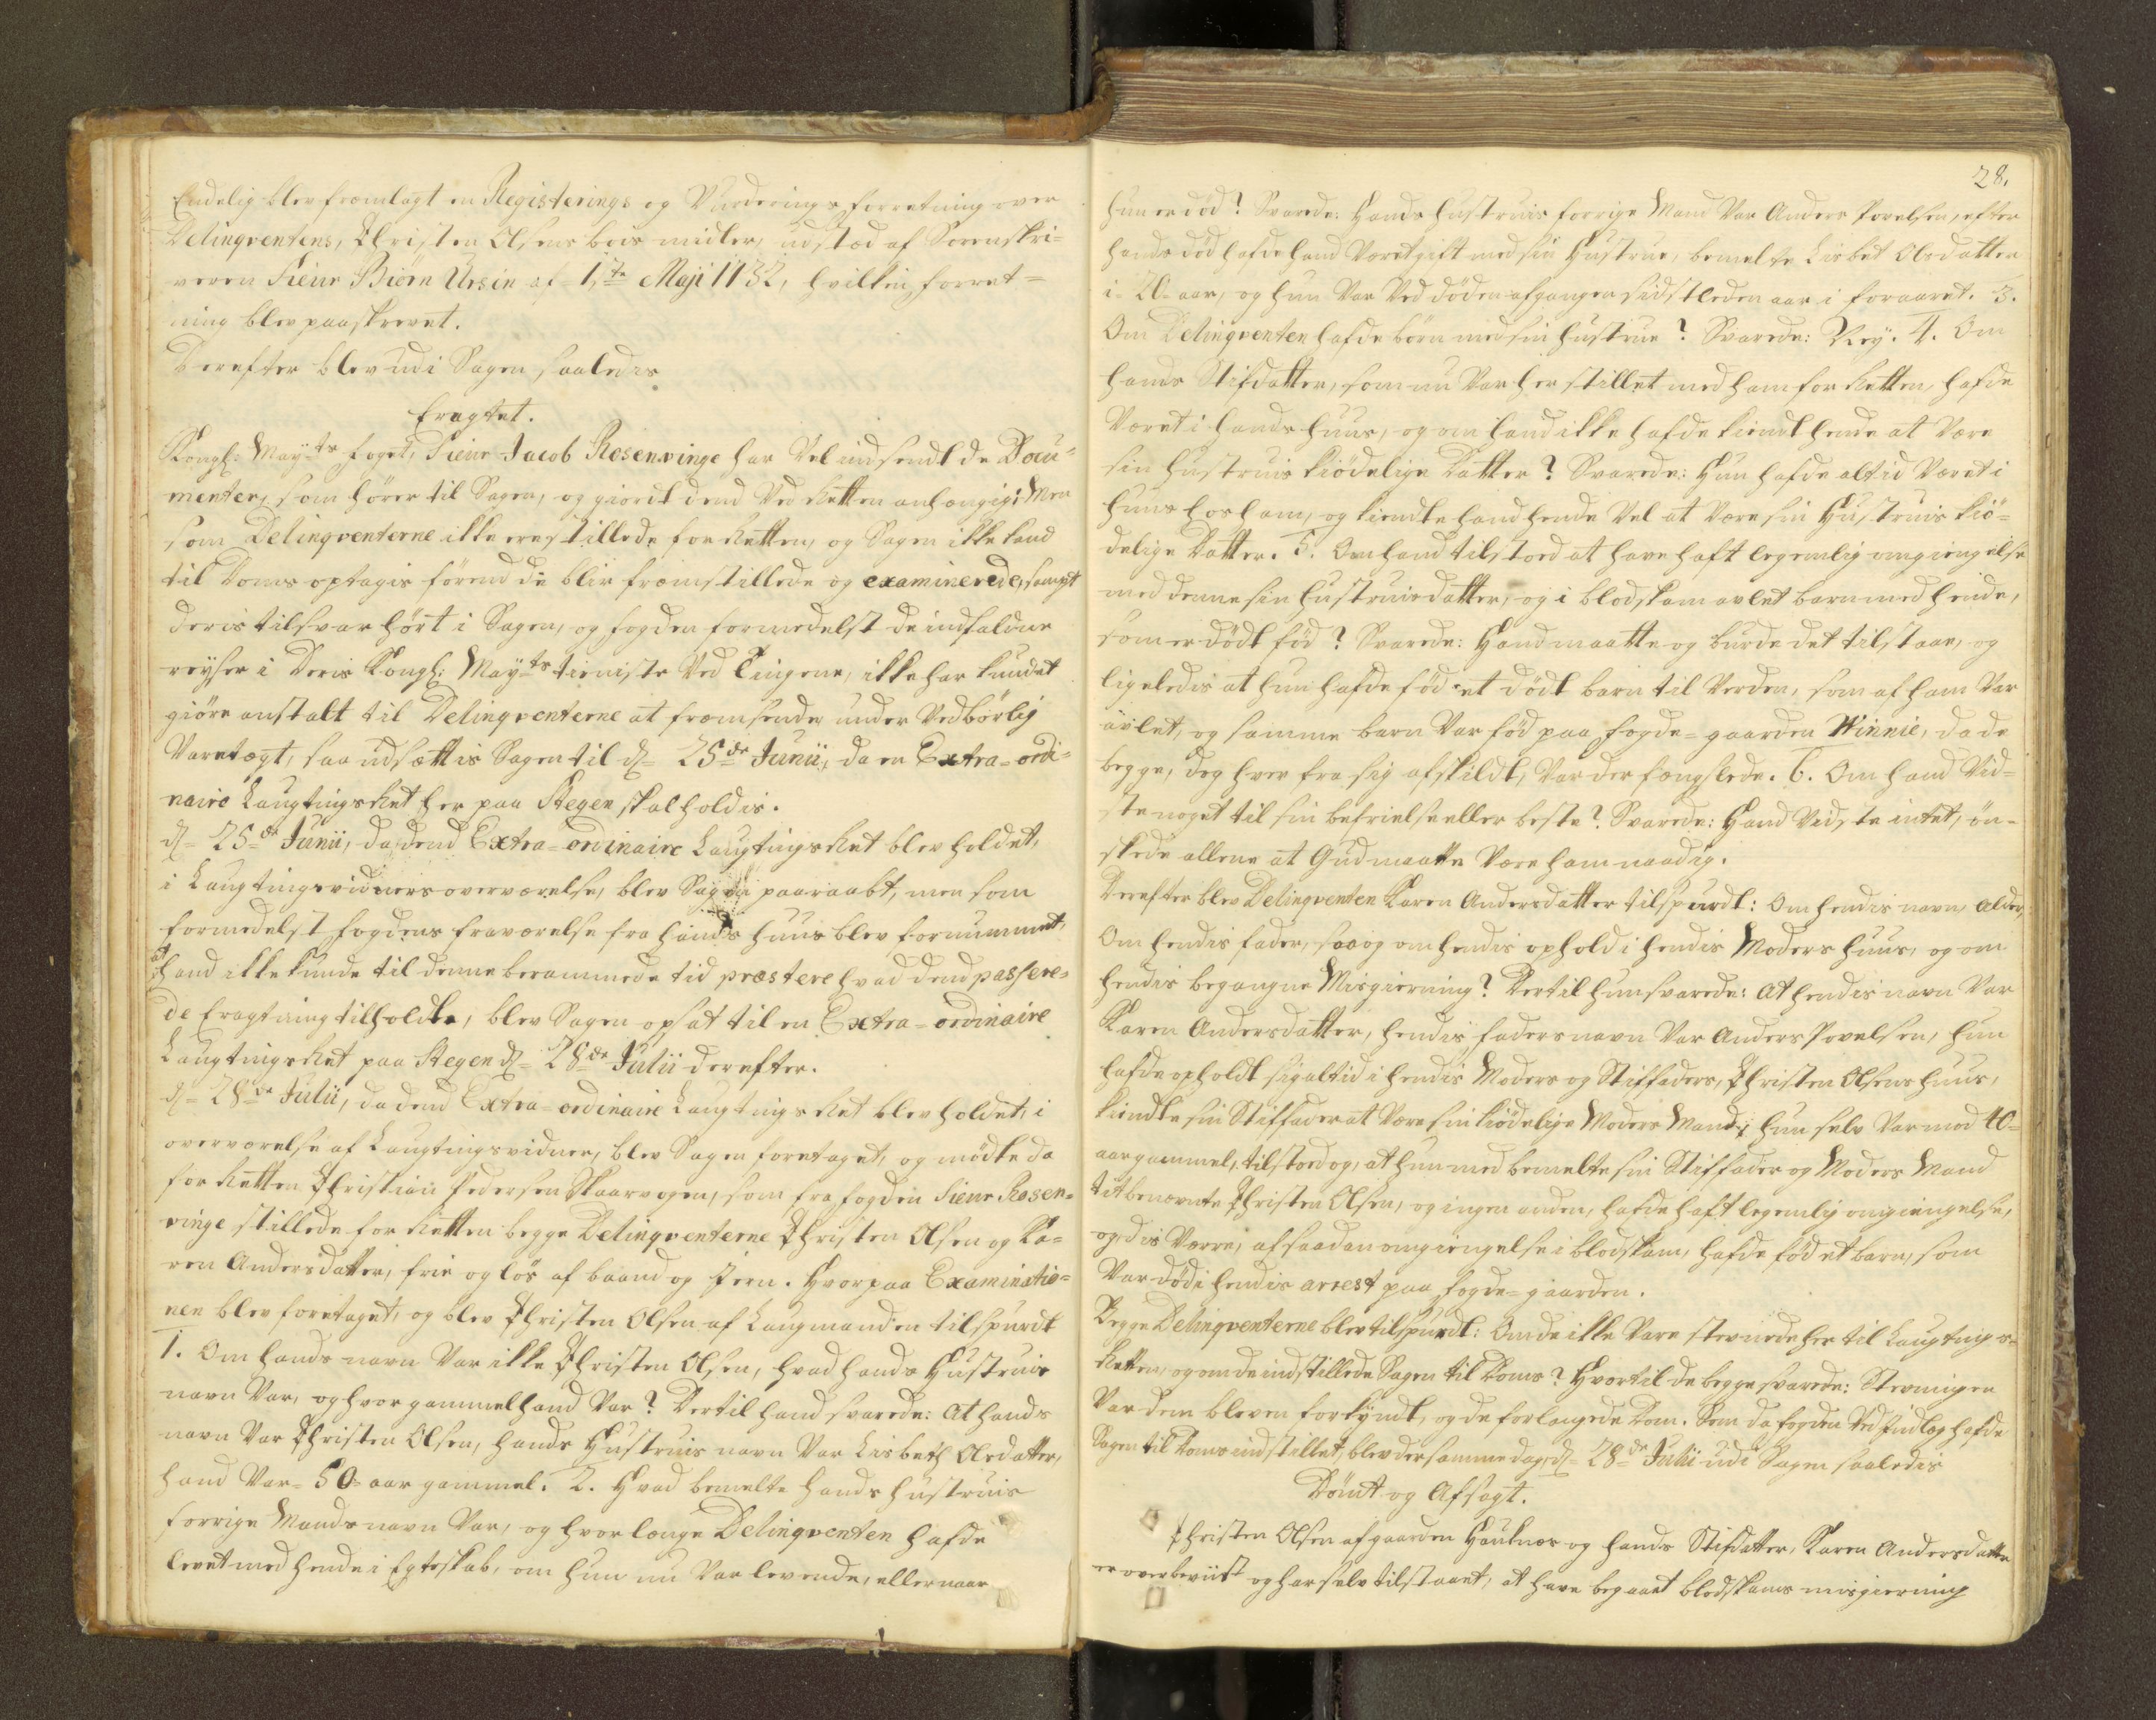 Endelig blev fremlagt en Registerings og Vurderings forretning over
Delinqventens, Christen Olsens boes midler, udstæd af Sorenskri=
veren Sieur Biørn Ursin af 1ste Maji 1732, hvilken forret=
ning blev paaskrevet.
Derefter blev udi Sagen saaledis
Eragtet.
Kongl: May:ts foget, Sieur Jacob Rosenvinge har Vel indsendt de Docu=
menter, som hører til Sagen, og giordt dend Ved Retten anhængig; Men
som Delinqventerne ikke ere stillede for Retten, og Sagen ikke kand
til Doms optagis førend de blir fremstillede og examinerede, sampt
deris tilsvar hørt i Sagen, og fogden formedelst de indfaldne
reyser i Deris Kongl: May:ts tieniste Ved Tingene, ikke har kundet
giøre anstalt til Delinqventerne at fremsende under Vedbørlig
Varetægt, saa udsættis Sagen til d. 25de Junii, da en Extra=ordi=
naire Laugtings Ret her paa Stegen skal holdis.
d. 25de Junii, da dend Extra=ordinaire Laugtings Ret blev holdet,
i Laugtingsvidners overværelse, blev Sagen paaraabt, men som
formedelst fogdens fraværelse fra hands huus blev fornummet,
at hand ikke kunde til denne berammede tid præstere hvad dend passere=
de Eragtning tilholdte, blev Sagen opsat til en Extra=ordinaire
Laugtings Ret paa Stegen d. 28de Julii derefter.
d. 28de Julii, da dend Extra=ordinaire Laugtings Ret blev holdet, i
overværelse af Laugtingsvidner, blev Sagen foretaget, og mødte da
for Retten Christian Pedersen Skaarvogen, som fra fogden Sieur Rosen=
vinge stillede for Retten begge Delinqventerne Christen Olsen og Ka=
ren Andersdatter, frie og løs af baand og Jern. Hvorpaa Examinatio=
nen blev foretaget, og blev Christen Olsen af Laugmanden tilspurdt
1. Om hands navn Var ikke Christen Olsen, hvad hands Hustruis
navn Var, og hvor gammel hand Var? Dertil hand svarede: At hands
navn Var Christen Olsen, hands Hustruis navn Var Lisbeth Olsdatter,
hand Var 50 aar gammel. 2. Hvad bemelte hands hustruis
forrige Mands navn Var, og hvor længe Delinqventen hafde
levet med hende i Egteskab, om hun nu Var levende, eller naar
28.
hun er død? Svarede: Hands hustruis forrige Mand Var Anders Povelsen, efter
hands død hafde hand Været gift med sin Hustrue, bemelte Lisbet Olsdatter
i 20 aar, og hun Var Ved døden afgangen sidstleden aar i foraaret. 3.
Om Delinqventen hafde børn med sin hustrue? Svarede: Ney. 4. Om
hands Stifdatter, som nu Var her stillet med ham for Retten, hafde
Været i hands huus, og om hand ikke hafde kiendt hende at Være
sin hustruis kiødelige Datter? Svarede: Hun hafde altid Været i
huus hos ham, og kiendte hand hende Vel at Være sin Hustruis kiø=
delige Datter. 5. Om hand tilstoed at have haft legemlig omgiengelse
med denne sin hustruis datter, og i blodskam avlet barn med hende,
som er dødt fød? Svarede: Hand maatte og burde det tilstaae, og
ligeledis at hun hafde fød et dødt barn til Verden, som af ham Var
avlet, og samme barn Var fød paa fogde=gaarden Winnie, da de
begge, dog hver fra sig afskildt, Var der fængslede. 6. Om hand Vid=
ste noget til sin befrielse eller beste? Svarede: Hand Vidste intet, øn=
skede allene at Gud maatte Være ham naadig.
Derefter blev Delinqventen Karen Andersdatter tilspurdt: Om hendis navn, alder,
Om hendis fader, saa og om hendis ophold i hendis Moders huus, og om
hendis begangne Misgierning? Dertil hun svarede: At hendis navn Var
Karen Andersdatter, hendis faders navn Var Anders Povelsen, hun
hafde opholdt sig altid i hendis Moders og Stiffaders, Christen Olsens huus,
kiendte sin Stiffader at Være sin kiødelige Moders Mand; hun selv Var mod 40
aar gammel, tilstoed og, at hun med bemelte sin Stiffader og Moders Mand
titbenævnte Christen Olsen, og ingen anden, hafde haft legemlig omgiengelse,
og, dis Værre, af saadan omgiengelse i blodskam, hafde fød et barn, som
Var død i hendis arrest paa fogde=gaarden.
Begge Delinqventerne blev tilspurdt: Om de ikke Vare stevnede her til Laugtings=
Retten, og om de indstillede Sagen til Doms? Hvortil de begge svarede: Stevningen
Var dem bleven forkyndt, og de forlangede Dom. Som da fogden Ved Indlæg hafde
Sagen til Doms indstillet, blev der samme dag, d. 28de Julii udi Sagen saaledis
Dømt og Afsagt.
Christen Olsen af gaarden Hauknæs og hands Stifdatter, Karen Andersdatter
er overbeviist og har selv tilstaaet, at have begaaet blodskams misgierning